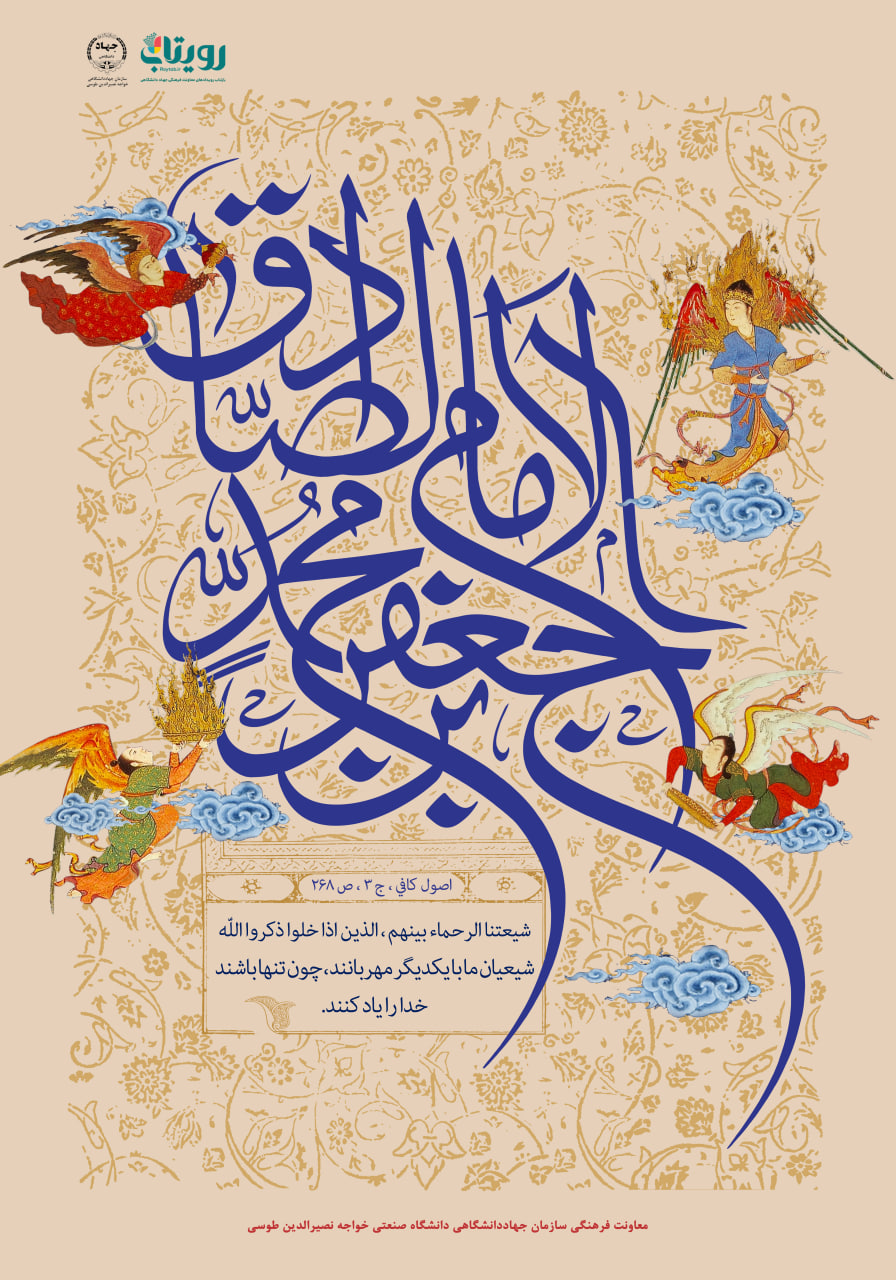 جهاد
دانشگاهی
سازمان جهاددانشگاهی
خواجه نصیرالدین طوسی
رویتاب
Roytab.ir
بازتاب رویدادهای معاونت فرهنگی جهاد دانشگاهی
الامام
جعفر بن محمد
الصادق
اصول کافي ، ج ۳ ، ص ۲۶۸
شیعتنا الرحماء بینهم ، الذین اذا خلوا ذکروا الله
شیعیان ما با یکدیگر مهربانند، چون تنها باشند
خدا را یاد کنند.
معاونت فرهنگی سازمان جهاددانشگاهی دانشگاه صنعتی خواجه نصیرالدین طوسی